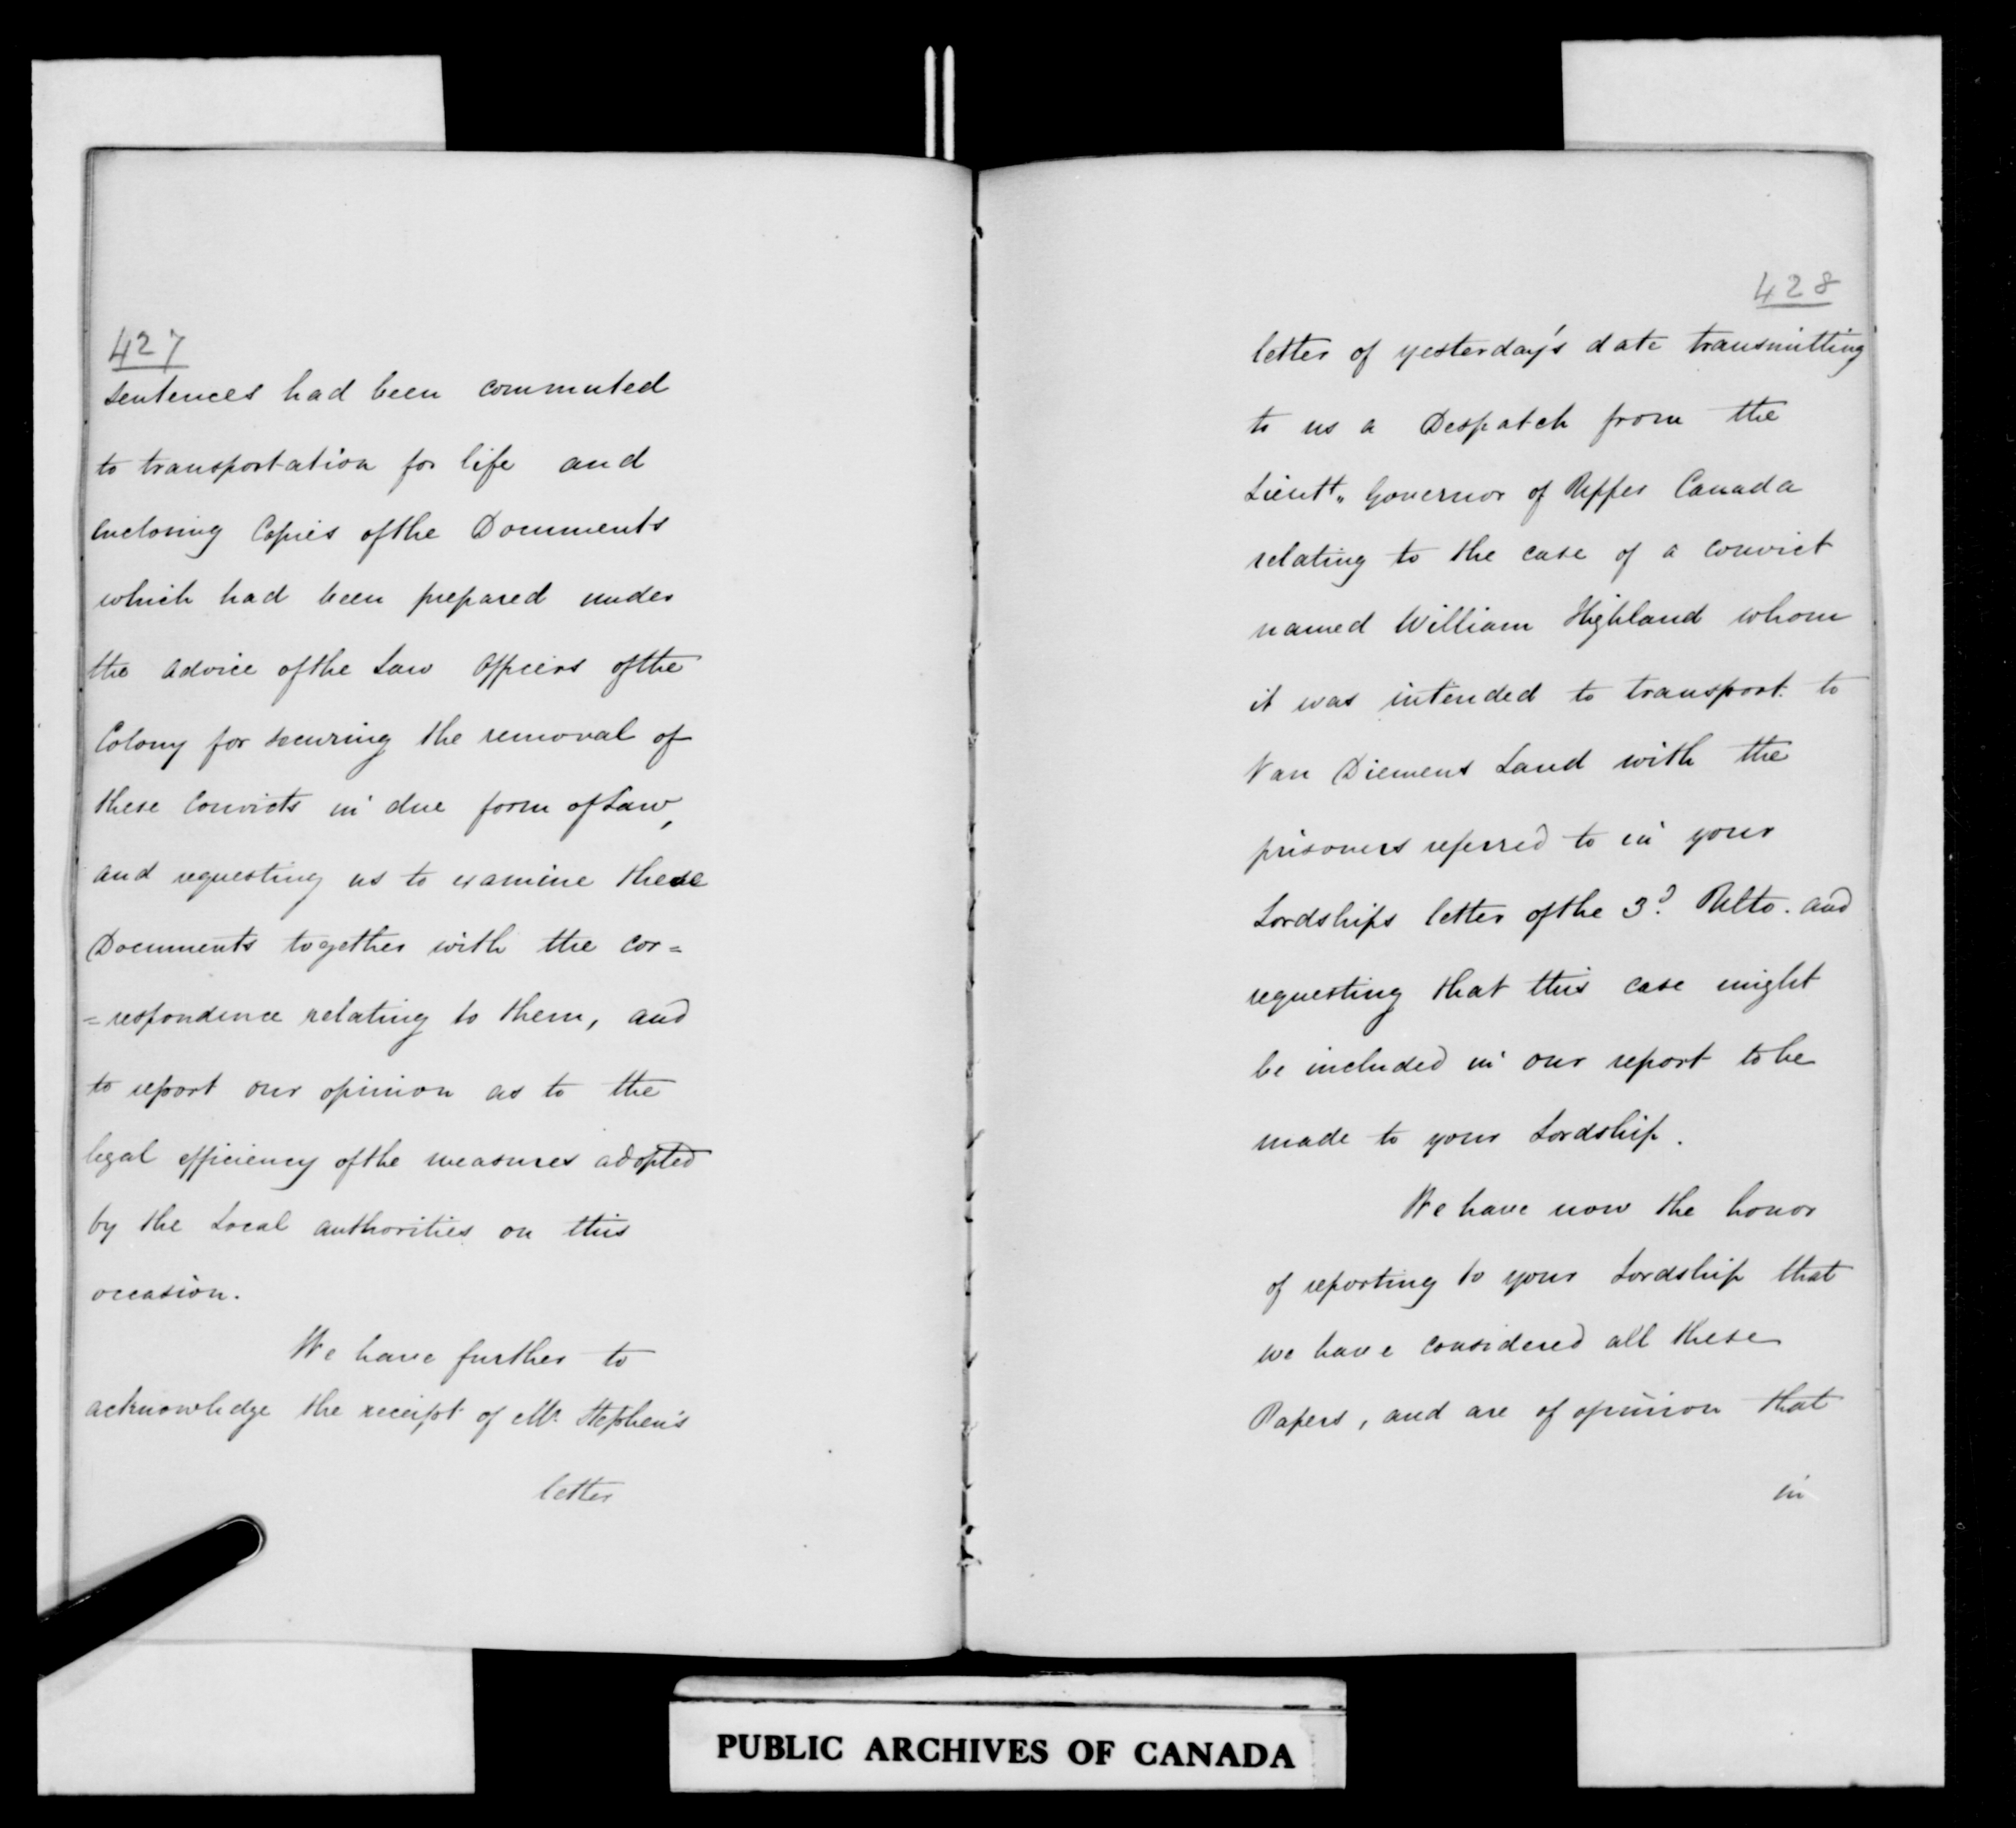 427
sentences had been commuted
to transportation for life and
enclosing Copies of the Documents
which had been prepared under
the advice of the Law Officers of the
Colony for securing the removal of
these Convicts in due form of Law,
and requesting us to examine these
Documents together with the cor=
=respondence relating to them, and
to report our opinion as to the
legal efficiency of the measures adopted
by the Local authorities on this
occasion.
We have further to
acknowledge the receipt of Mr. Stephen's
letter
428
letter of yesterday's date transmitting
to us a Despatch from the
Lieutt,, Governor of Upper Canada
relating to the case of a convict
named William Highland whom
it was intended to transport to
Van Diemens Land with the
prisoners referred to in your
Lordships letter of the 3d. Ulto. and
requesting that this case might
be included in our report to be
made to your Lordship.
We have now the honor
of reporting to your Lordship that
we have considered all these
Papers, and are of opinion that
in
PUBLIC ARCHIVES OF CANADA